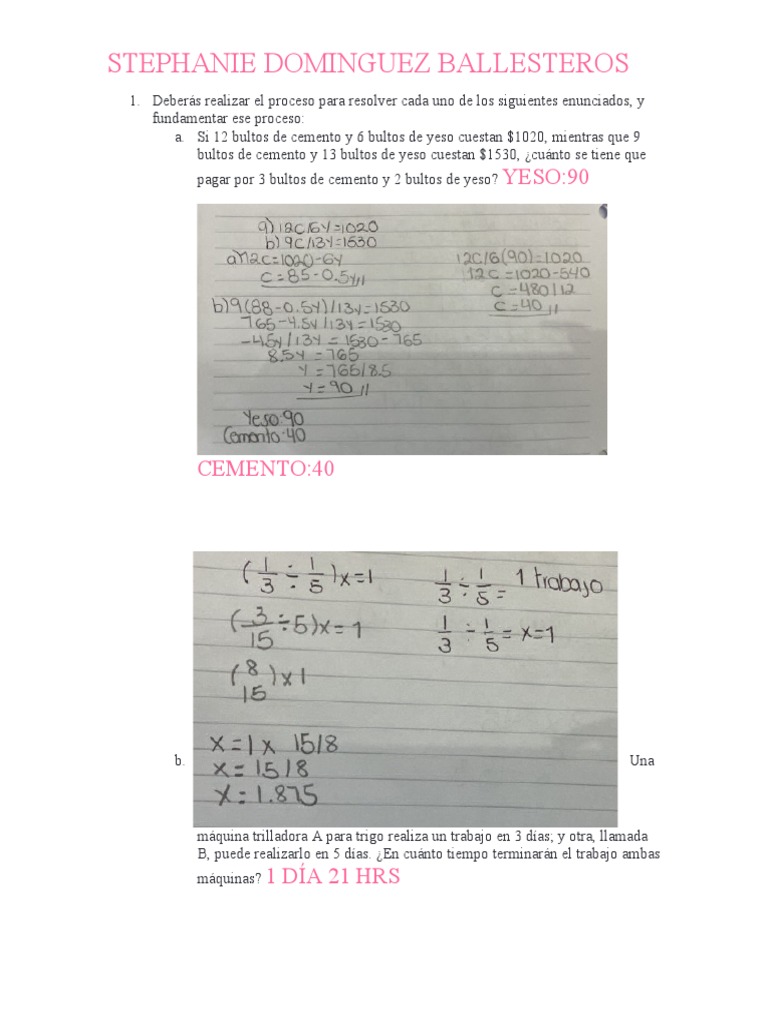 STEPHANIE DOMINGUEZ BALLESTEROS
1. Deberás realizar el proceso para resolver cada uno de los siguientes enunciados, y
fundamentar ese proceso:
a. Si 12 bultos de cemento y 6 bultos de yeso cuestan $1020, mientras que 9
bultos de cemento y 13 bultos de yeso cuestan $1530, ¿cuánto se tiene que
pagar por 3 bultos de cemento y 2 bultos de yeso? YESO:90
a) 12C/6Y=1020
b) 9C/13Y=1530
a) 12C=1020-6Y
C=85-0.5Y//
b) 9(88-0.5Y)/13Y=1530
765-4.5Y/13Y=1530
-4.5Y/13Y=1530-765
8.5Y=765
Y=765/8.5
Y=90//
Yeso:90
Cemento:40
12C/6(90)=1020
12C=1020-540
C=480/12
C=40//
CEMENTO:40
(1/3 ÷ 1/5)x=1
(3/15 ÷ 5)x=1
(8/15)x1
x=1x 15/8
x=15/8
x=1.875
1/3 ÷ 1/5 = 1 trabajo
1/3 ÷ 1/5 = x=1
b. Una
máquina trilladora A para trigo realiza un trabajo en 3 días; y otra, llamada
B, puede realizarlo en 5 días. ¿En cuánto tiempo terminarán el trabajo ambas
máquinas? 1 DÍA 21 HRS